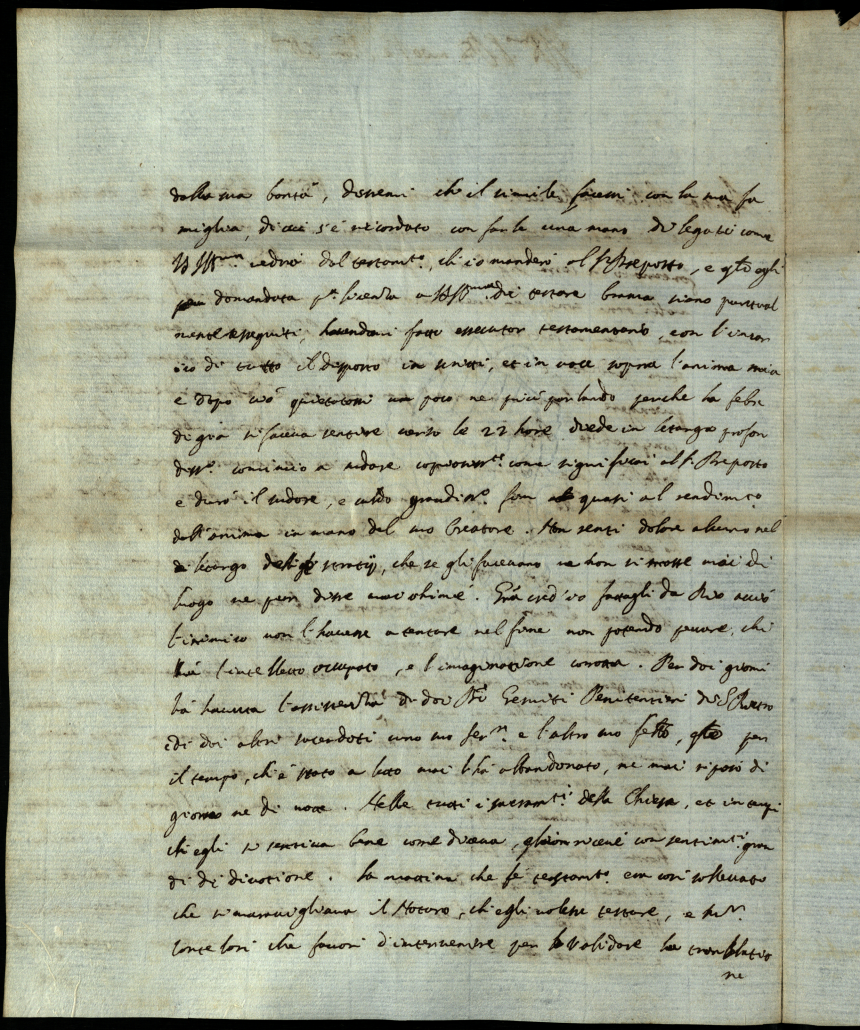 dalla sua bontà, desidera ch'il simile facessi con la sua fa
miglia, di cui s'è ricordato con farle una mano di legati come
VS Ill.ma vedrà dal testam.to, ch'io manderò al S.r Preposto, e q.to egli
domandata p.a licenza a VS Ill.ma di testare brama siano pontual
mente eseguiti, havendomi fatto essecutor testamentario, con l'incar
ico di tutto il disposto in scritti, et in voce sopra l'anima mia
e dopo ciò quietatosi un poco ne più parlando perche la febre
di già si faceva sentire verso le 22 hore diede in letargo profon
diss.o cominciò a sudare copiosam.te come significai al S.r Preposto
e durò il sudore, e caldo grandiss.o fin quasi al rendim.to
dell'anima in mano del suo Creatore. Non sentì dolore alcuno nel
letargo delli stratij, che se gli facevano ne si mosse mai di
luogo ne pur disse mai ohimè. Gra cred'io fattagli da Dio acciò
l'inimico non l'havesse a tentare nel fine non potendo peccare, chi
hà l'intelletto occupato, e l'imaginatione corrotta. Per doi giorni
hà havuta l'assistenza di doi P.ri Gesuiti Penitentieri di S. Pietro
e di doi altri sacerdoti uno suo ser.re e l'altro suo, q.to per
il tempo, ch'è stato a letto mai l'hà abbandonato, ne mai riposò di
giorno ne di notte. Hebbe tutti i sacram.ti della Chiesa, et in tempi
ch'egli si sentiva bene come diceva, gli ricevè con sentim.ti gran
di di divotione. La mattina che fè testam.to era così sollevato
che si maravigliava il Notaro, ch'egli volesse testare, e
Conte che favorì d'intervenire per validare la translatio
ne